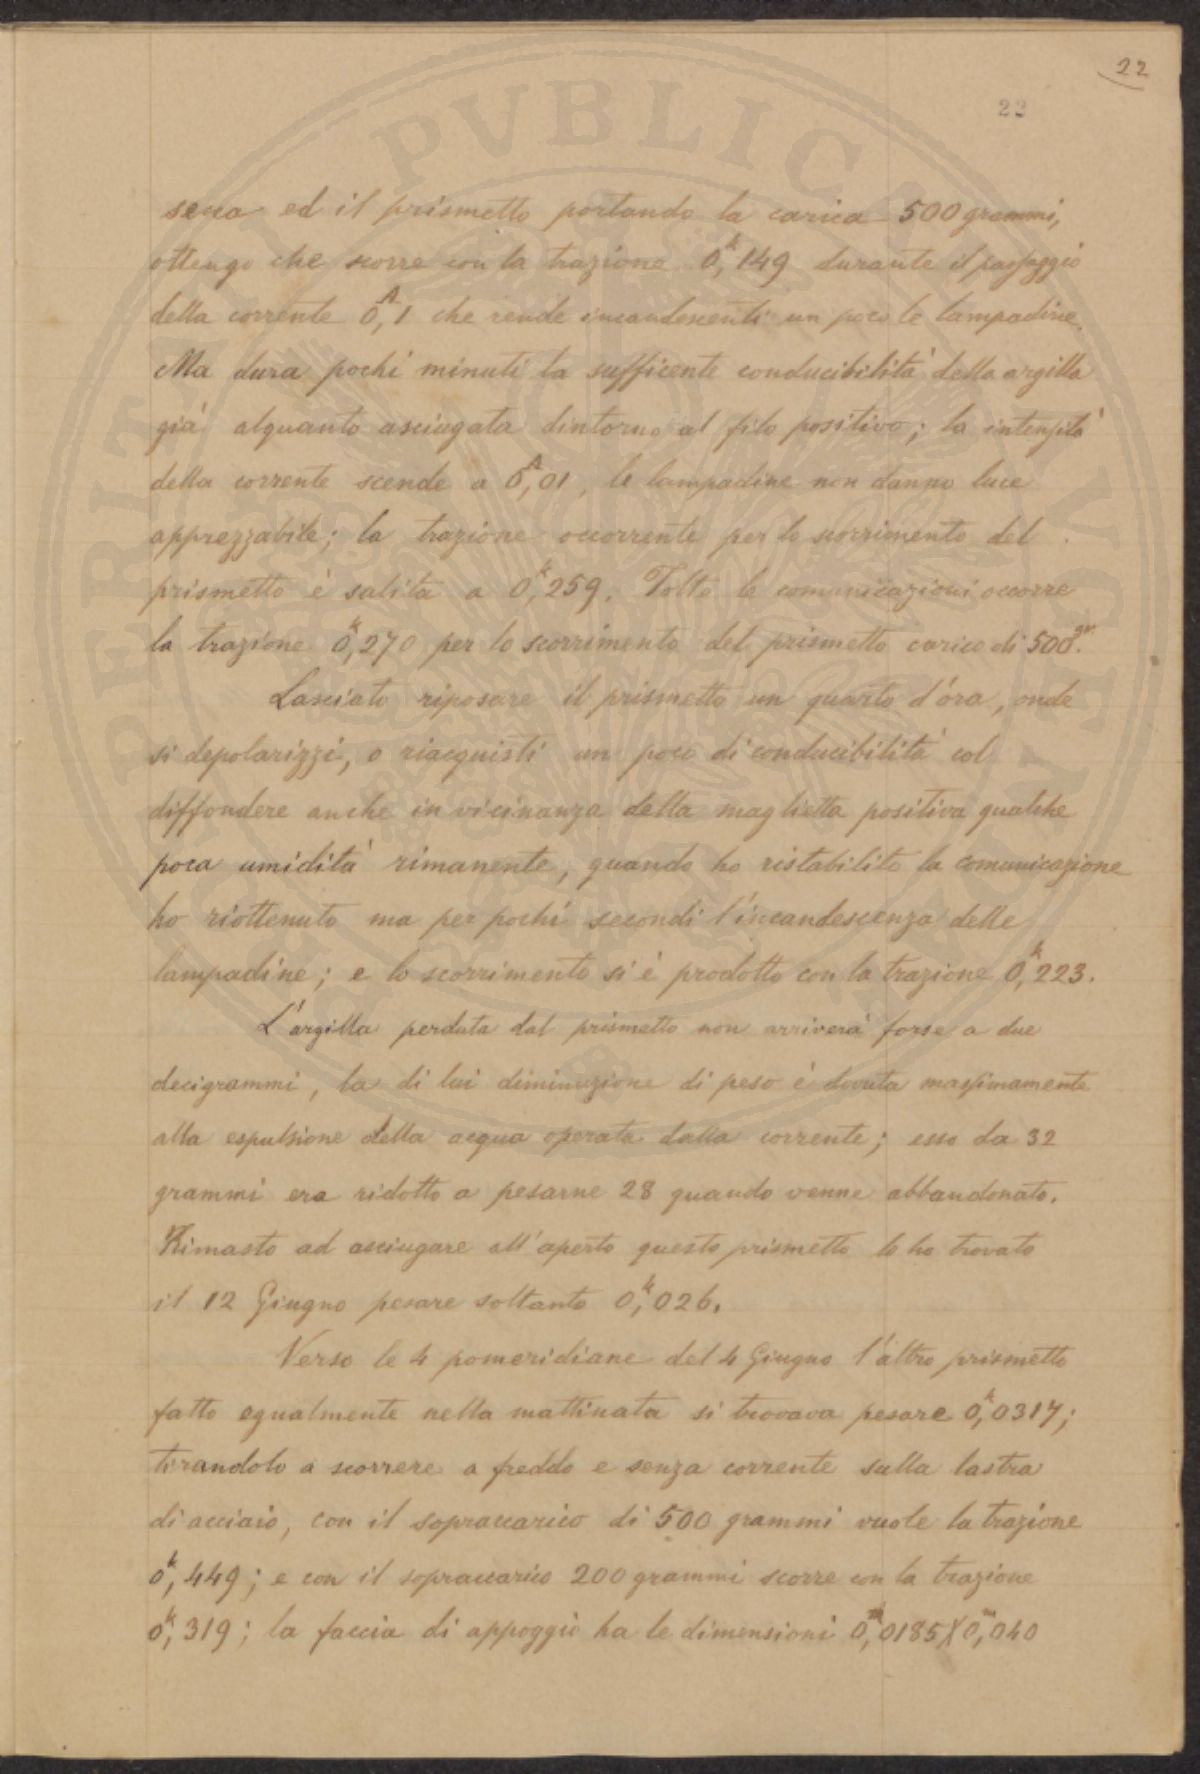 22
22
secca ed il prismetto portando la carica 500 grammi,
ottengo che scorre con la trazione 0,ᵏ149 durante il passaggio
della corrente 0,ᴬ1 che rende incandescenti un poco le lampadine.
Ma dura pochi minuti la sufficente conducibilità della argilla
già alquanto asciugata dintorno al filo positivo; la intensità
della corrente scende a 0,ᴬ01, le lampadine non danno luce
apprezzabile; la trazione occorrente per lo scorrimento del
prismetto è salita a 0,ᵏ259. Tolte le comunicazioni occorre
la trazione 0,ᵏ270 per lo scorrimento del prismetto carico di 500ᵍʳ.
Lasciato riposare il prismetto un quarto d'ora, onde
si depolarizzi, o riacquisti un poco di conducibilità col
diffondere anche in vicinanza della maglietta positiva qualche
poca umidità rimanente, quando ho ristabilito la comunicazione
ho riottenuto ma per pochi secondi l'incandescenza delle
lampadine; e lo scorrimento si è prodotto con la trazione 0,ᵏ223.
L'argilla perduta dal prismetto non arriverà forse a due
decigrammi, la di lui diminuzione di peso è dovuta massimamente
alla espulsione della acqua operata dalla corrente; esso da 32
grammi era ridotto a pesarne 28 quando venne abbandonato.
Rimasto ad asciugare all'aperto questo prismetto lo ho trovato
il 12 Giugno pesare soltanto 0,ᵏ026.
Verso le 4 pomeridiane del 4 Giugno l'altro prismetto
fatto egualmente nella mattinata si trovava pesare 0,ᵏ0317;
tirandolo a scorrere a freddo e senza corrente sulla lastra
di acciaio, con il sopraccarico di 500 grammi vuole la trazione
0,ᵏ449; e con il sopraccarico 200 grammi scorre con la trazione
0,ᵏ319; la faccia di appoggio ha le dimensioni 0,ᵐ0185X0,ᵐ040